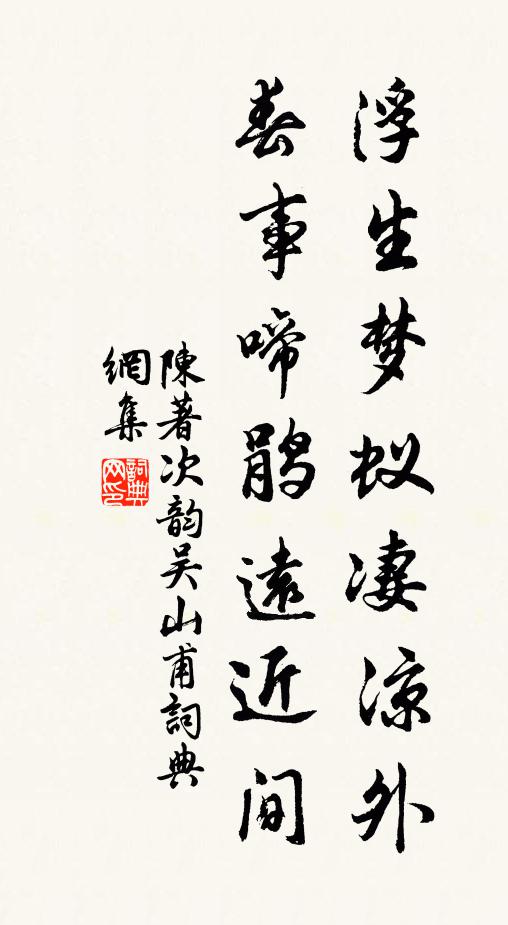 浮生梦蚁凄涼外
春事啼鹃遠近间
陳著次韵吴山甫詞典
網集
詞典网印